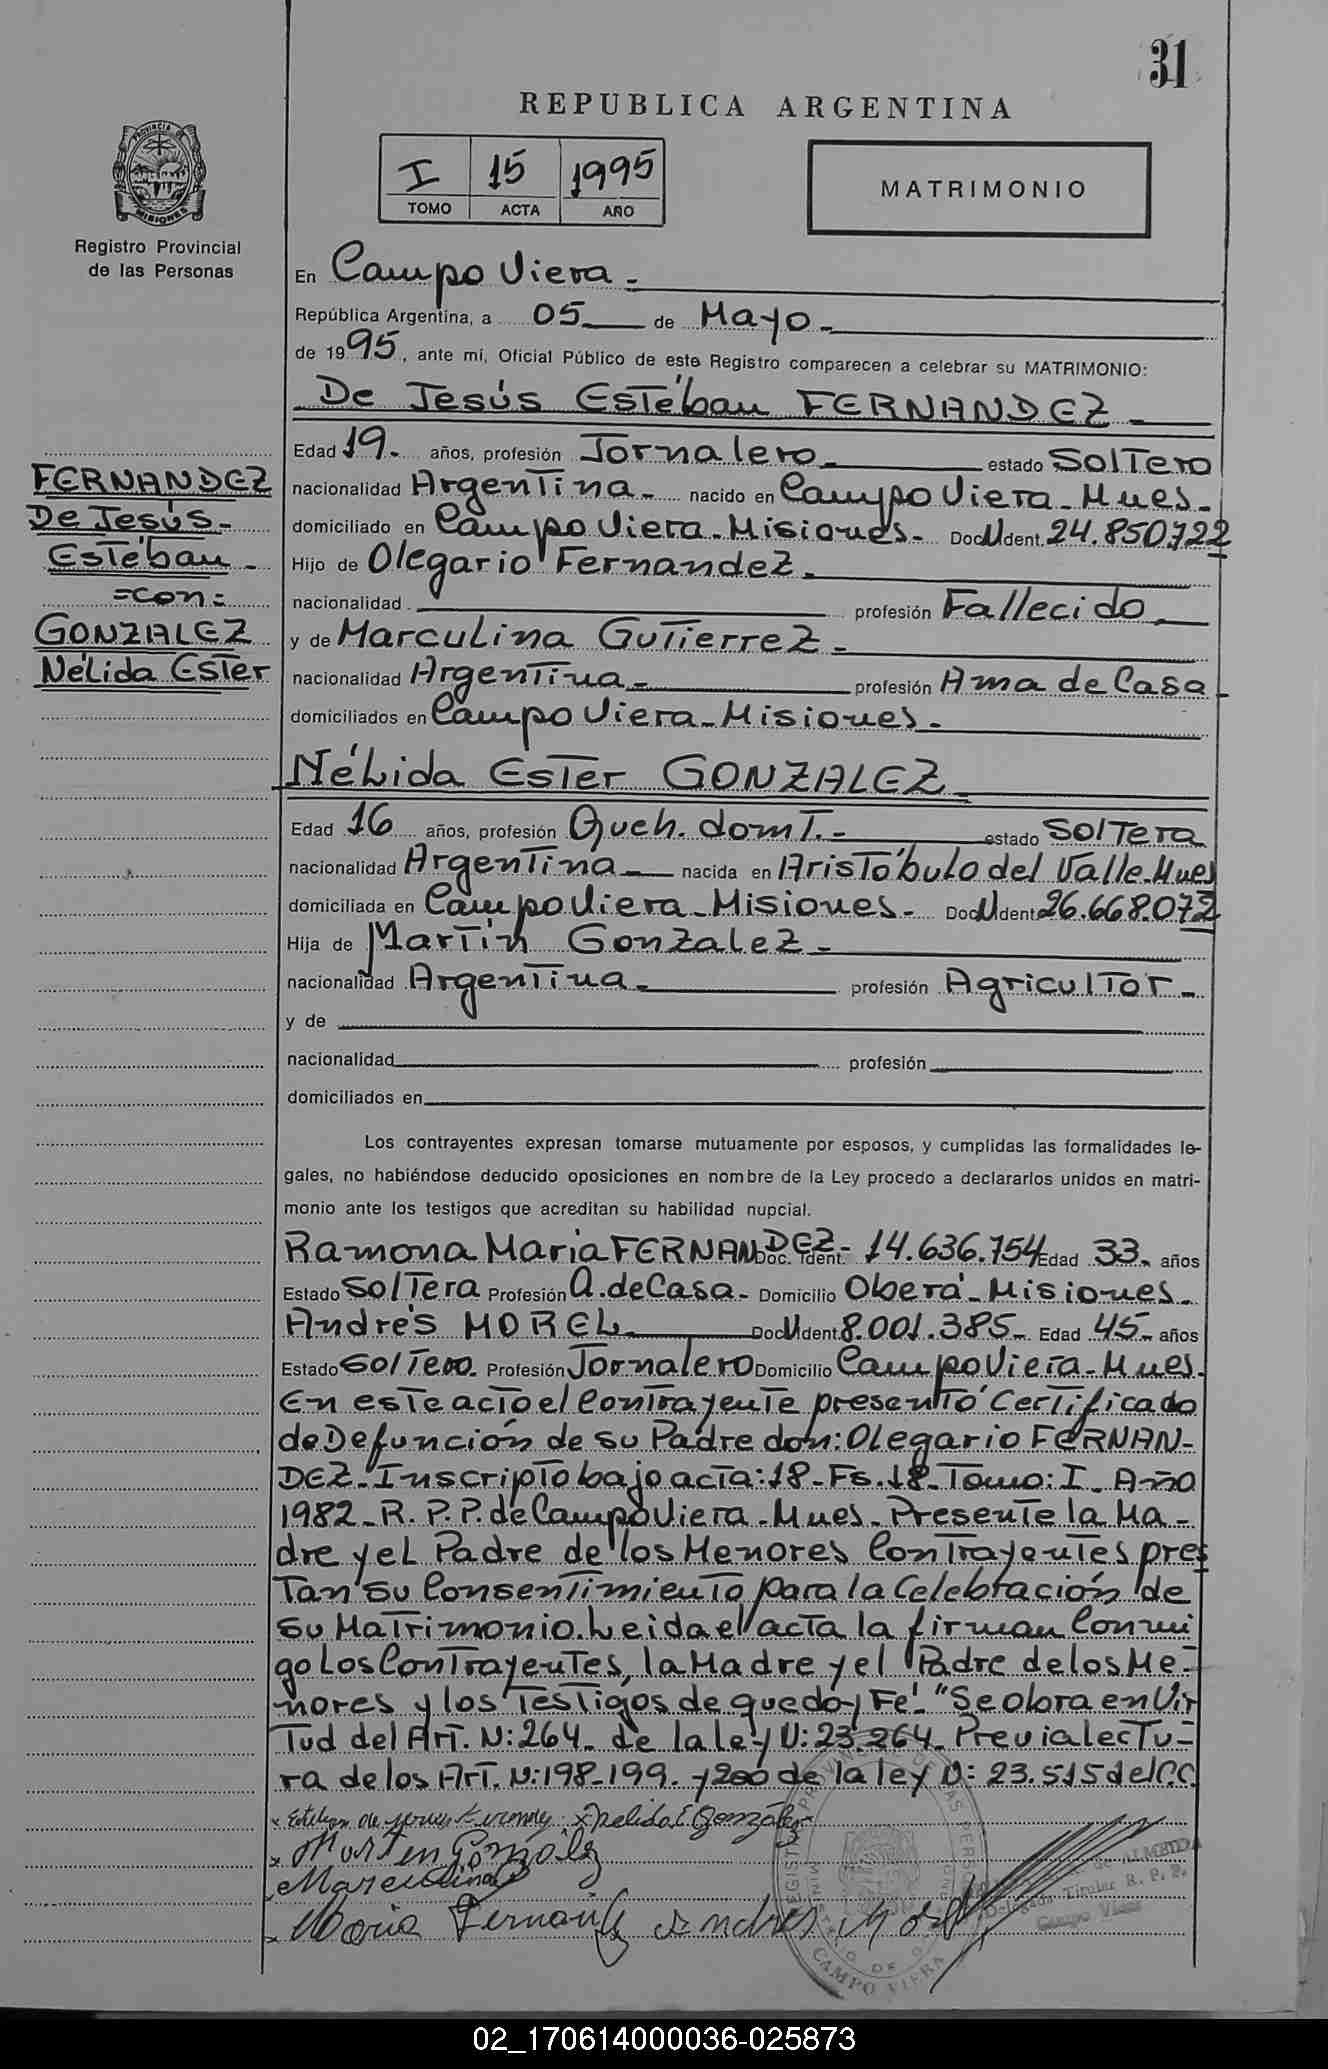 31
REPUBLICA ARGENTINA
I 15 1995
TOMO ACTA AÑO
MATRIMONIO
PROVINCIA DE
MISIONES
Registro Provincial
de las Personas
En Campo Viera.-
República Argentina, a 05 de Mayo.-
de 1995, ante mí, Oficial Público de este Registro comparecen a celebrar su MATRIMONIO:
De Jesús Estéban FERNANDEZ.-
Edad 19.- años, profesión Jornalero.- estado Soltero
nacionalidad Argentina.- nacido en Campo Viera-Mnes.-
domiciliado en Campo Viera-Misiones.- Doc. U dent. 24.850.722
Hijo de Olegario Fernandez.-
nacionalidad profesión Fallecido.-
y de Marculina Gutierrez.-
nacionalidad Argentina.- profesión Ama de Casa-
domiciliados en Campo Viera-Misiones.-
FERNANDEZ
De Jesús-
Estéban-
=con=
GONZALEZ
Nélida Ester
Nélida Ester GONZALEZ.-
Edad 16 años, profesión Queh. domt.- estado Soltera
nacionalidad Argentina- nacida en Aristóbulo del Valle-Mnes
domiciliada en Campo Viera-Misiones.- Doc. U dent. 26.668.072
Hija de Martín Gonzalez.-
nacionalidad Argentina.- profesión Agricultor-
y de
nacionalidad profesión
domiciliados en
Los contrayentes expresan tomarse mutuamente por esposos, y cumplidas las formalidades le-
gales, no habiéndose deducido oposiciones en nombre de la Ley procedo a declararlos unidos en matri-
monio ante los testigos que acreditan su habilidad nupcial.
Ramona Maria FERNANDEZ.- Doc. Ident. 14.636.754 Edad 33.- años
Estado Soltera Profesión A. de Casa- Domicilio Oberá-Misiones.-
Andrés MOREL Doc. U dent. 8.001.385- Edad 45.- años
Estado Soltero. Profesión Jornalero Domicilio Campo Viera-Mnes.
En este acto el Contrayente presentó Certificado
de Defunción de su Padre don: Olegario FERNAN-
DEZ-Inscripto bajo acta: 18-Fs.18-Tomo: I-Año
1982-R.P.P. de Campo Viera-Mnes-Presente la Ma-
dre y el Padre de los Menores Contrayentes pres
tan su Consentimiento para la Celebración de
su Matrimonio. Leida el acta la firman Conmi
go Los Contrayentes, la Madre y el Padre de los Me-
nores y los Testigos de que doy Fé. "Se obra en Vir
tud del Art. N: 264- de la ley N: 23.264- Previa lectu-
ra de los Art. N: 198-199.-y 200 de la ley N: 23.515 del C.C.
x Nelida E González
x Martin González
Marculina
x Maria Fernandez Andres Morel
de ALMEIDA
Delegado Titular R. P. P.
Campo Viera
CAMPO VIERA
02_170614000036-025873